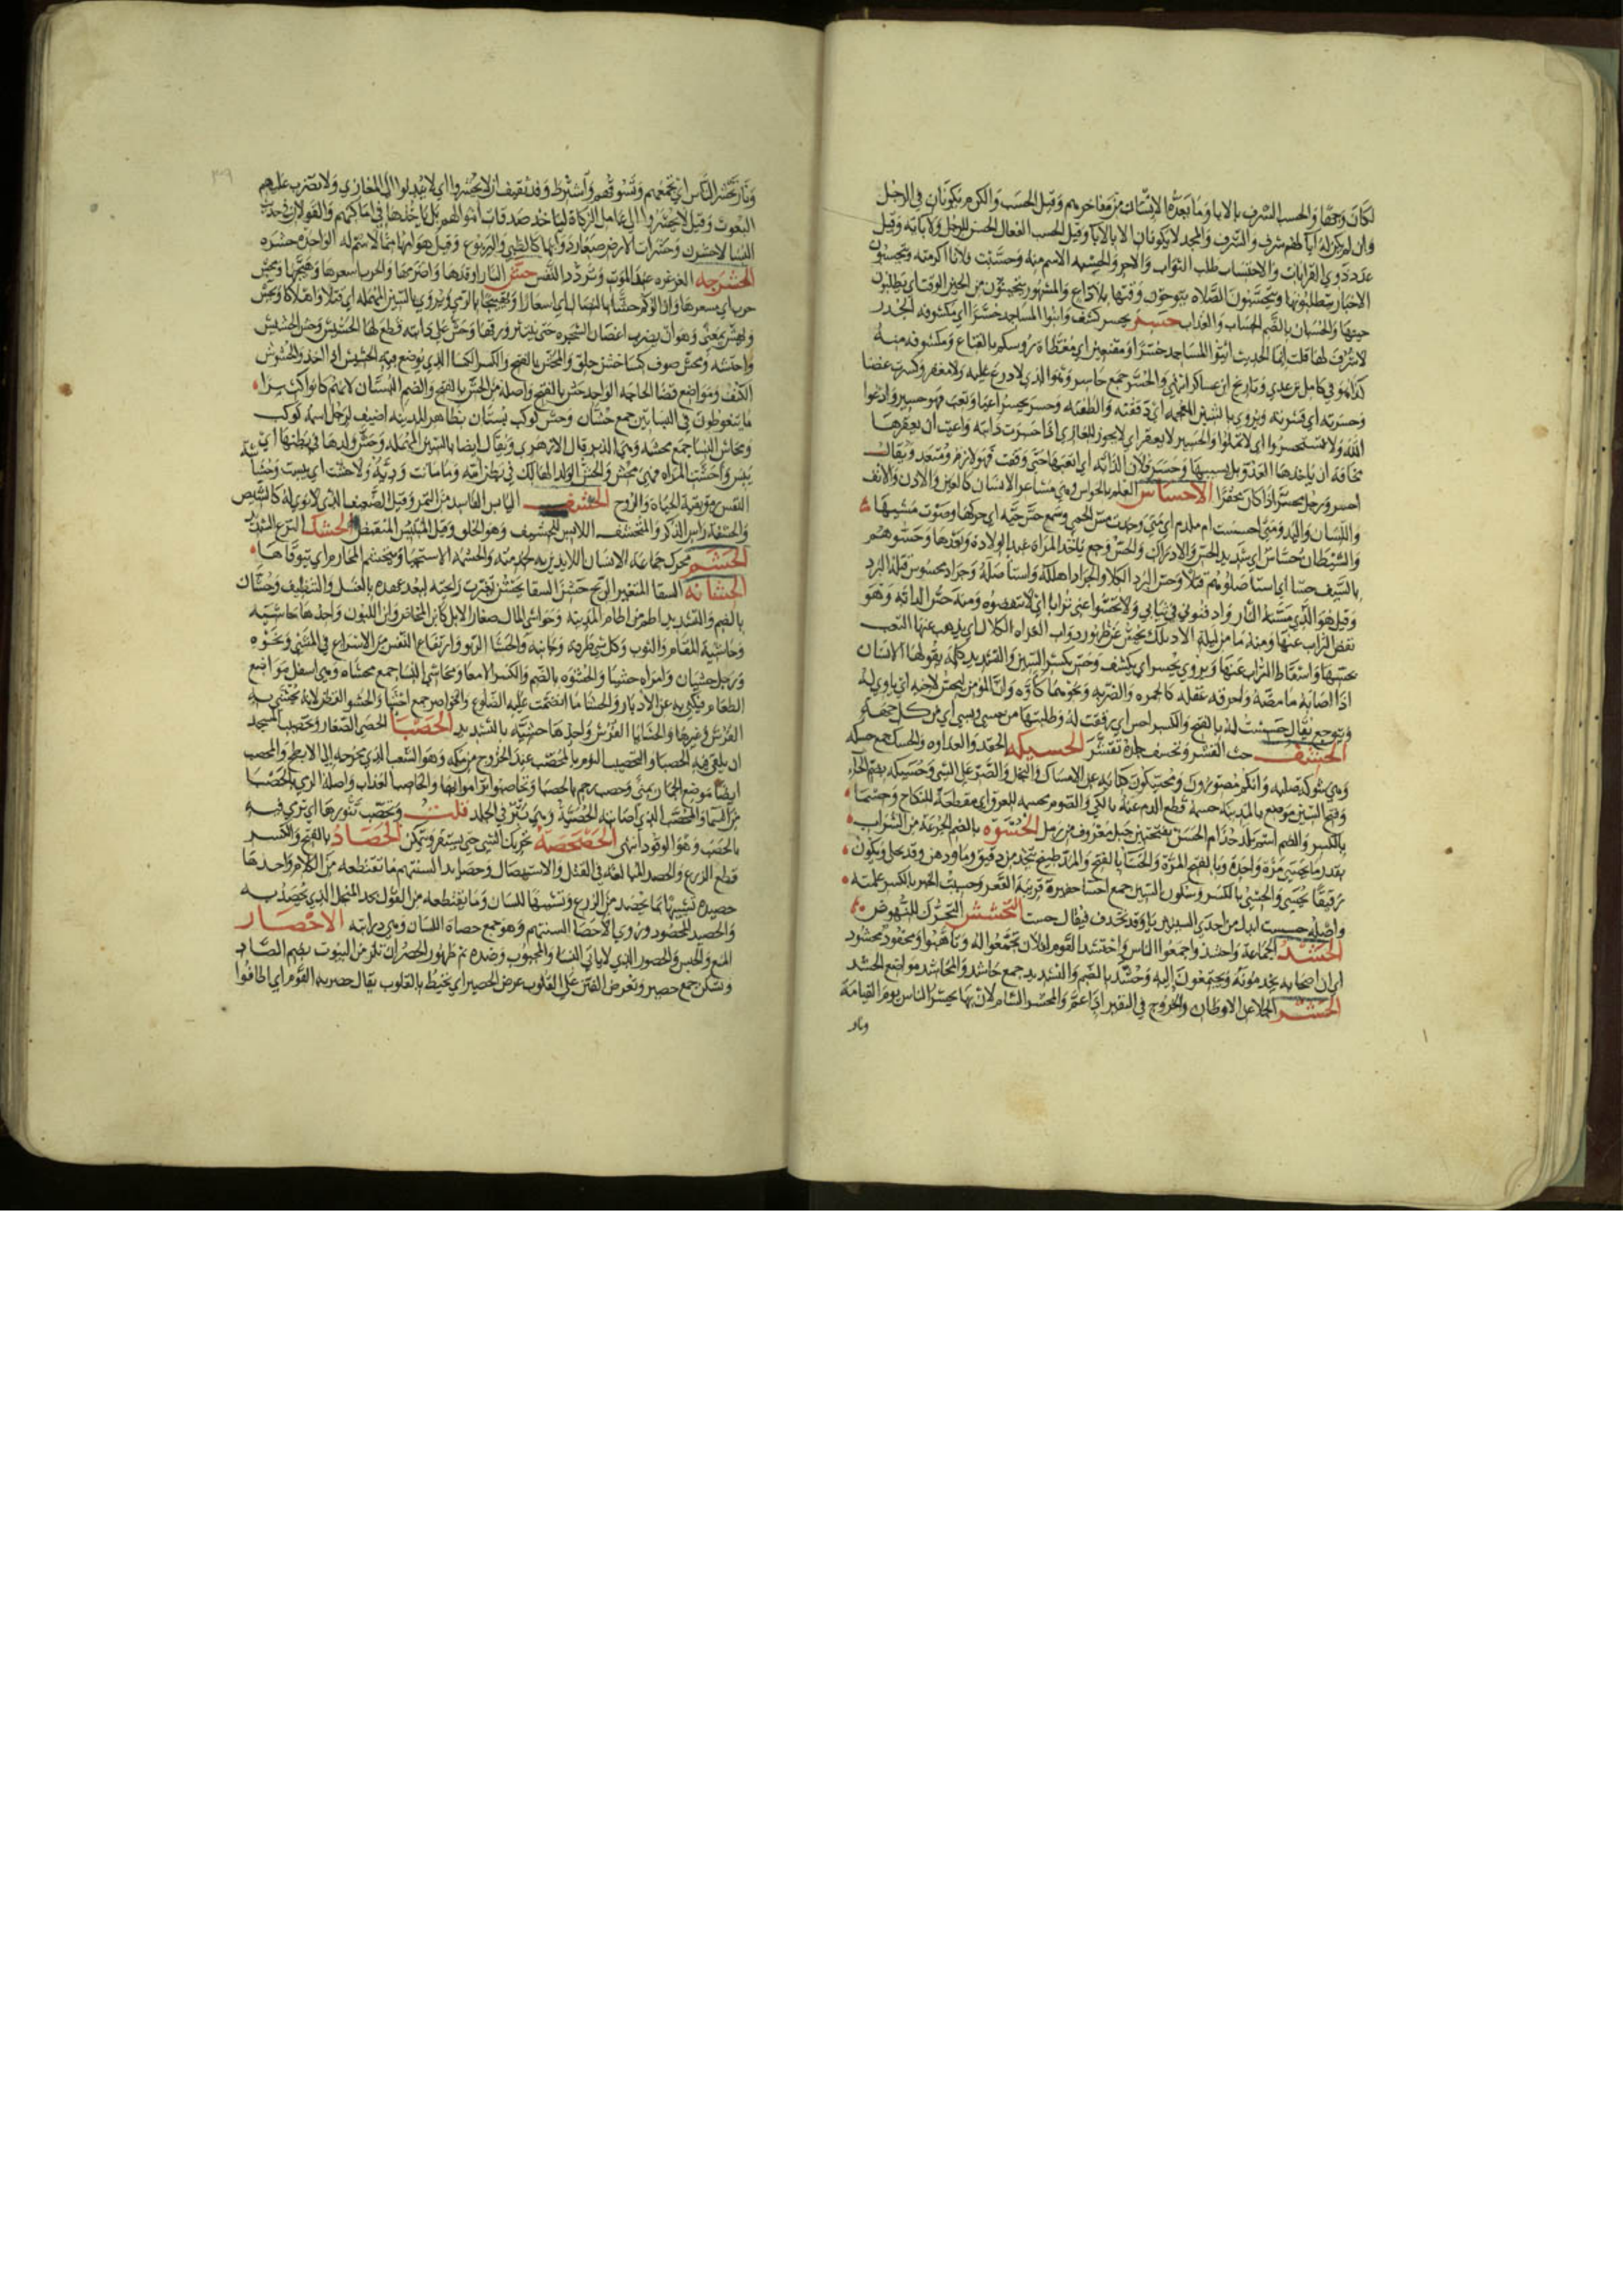 لكان وجها والحسب الشرف بالآباء وما يعده الإنسان من مفاخرهم وقيل الحسب والكرم يكونان في الرجل
وان لم يكن له آباء لهم شرف والشرف والمجد لا يكونان الا بالآباء وقيل الحسب الفعال الحسن للرجل ولآبائه وقيل
عدد ذوي القرابات والاحتساب طلب الثواب والاجر والحسبه الاسم منه وحسبت فلانا اكرمته ويتحسبون
الاخبار يتطلبونها ويتحسبون الصلاه يتوخون وقتها بلا داع والمشهور يتحينون من الحين الوقت اي يطلبون
حينها والحسبان بالضم الحساب والعذاب حسر يحسر كشف وابنوا المساجد حسرا اي مكشوفه الجدر
لا شرف لها قلت انما الحديث ائتوا المساجد حسرا ومقنعين اي مغطاة رؤسكم بالقناع ومكشوفه منه
كذا هو في كامل بن عدي وتاريخ ابن عساكر انتهى والحسر جمع حاسر وهو الذي لا درع عليه ولا مغفر وكسرت غصنا
وحسرته اي قشرته ويروي بالشين المعجمه اي دققته والطفته وحسر يحسر اعيا وتعب فهو حسير وادعوا
الله ولا تستحسروا اي لا تملوا والحسير لا يعقر اي لا يجوز للغازي اذا حسرت دابته واعيت ان يعقرها
مخافة ان ياخذها العدو بل يسيبها وحسر فلان الدابه اي اتعبها حتى وقفت فهو لازم ومتعد ويقال
احسر ورجل محسر اذا كان محقرا الاحساس العلم بالحواس وهي مشاعر الانسان كالعين والاذن والانف
واللسان واليد ومتى احسست ام ملدم اي متى وجدت مس الحمى وسمع حس حيه اي حركتها وصوت مشيها
والشيطان حساس اي شديد الحس والادراك والحس وجع ياخذ المراة عند الولادة وبعدها وحسوهم
بالسيف حسا اي استاصلوهم قتلا وحس البرد الكلا والجراد اهلكه واستاصله وجراد محسوس قتله البرد
وقيل هو الذي مسته النار وادفنوني في ثيابي ولا تحسوا عني ترابا اي لا تنفضوه ومنه حس الدابه وهو
نفض التراب عنها ومنه ما من ليلة الا وملك يحس عن ظهور دواب الغزاه الكلال اي يذهب عنها التعب
بحسها واسقاط التراب عنها ويروي يحسر اي يكشف وحس بكسر السين والتشديد كلمة يقولها الانسان
اذا اصابه ما مضه واحرقه غفله كالجمره والضربه ونحوهما كاوه وان المؤمن ليحس لاخيه اي ياوي له
ويتوجع يقال حسست له بالفتح والكسر احس اي رققت له وطلبتها من حسي وبسي اي من كل جهه
الحسف حت القشر وتحسف جلدة تقشر الحسيكه الحقد والعداوه والحسك جمع حسكه
وهي شوكه صلبه وانكم مصررون ومحسكون كناية عن الامساك والبخل والصر على الشي وحسيكه بضم الحاء
وفتح السين موضع بالمدينه حسمه قطع الدم عنه بالكي والصوم محسمه للعرق اي مقطعة للنكاح وحسما
بالكسر والضم اسم بلد جذام الحسن بفتحتين جبل معروف من رمل الحسوه بالضم الجرعة من الشراب
بقدر ما يحسى مرة واحدة وبالفتح المرة والحسا بالفتح والمد طبيخ يتخذ من دقيق وما ودهن وقد يحلى ويكون
رقيقا يحسى والحسي بالكسر وسكون السين جمع احسا حفيرة قريبة القعر وحسيت الخبر بالكسر علمته
واصله حسست ابدل من احدى السينين يا وقد تحذف فيقال حست التحشحش التحرك للنهوض
الحشد الجماعة واحشد واجمعوا الناس واحتشد القوم لفلان تجمعوا له وتاهبوا ومحفود محشود
اي ان اصحابه يخدمونه ويجتمعون اليه وحشد بالضم والتشديد جمع حاشد والمحاشد مواضع الحشد
الحشر الجلا عن الاوطان والخروج في النفير اذا عم والمحشر الشام لان بها يحشر الناس يوم القيامة
ونار
ونار تحشر الناس اي تجمعهم وتسوقهم واشترط وفد ثقيف ان لا يحشروا اي لا يندبوا الى المغازي ولا تضرب عليهم
البعوث وقيل لا يحشروا الى عامل الزكاة لياخذ صدقات اموالهم بل ياخذها في اماكنهم والقولان في حديث
النسا لا يحشرن وحشرات الارض صغار دوابها كالضب واليربوع وقيل هوامها مما لا اسم له الواحدة حشره
الحشرجه الغرغره عند الموت وتردد النفس حش النار اوقدها واضرمها والحرب اسعرها وهيجها ومحش
حرب اي مسعرها وازالوكم حشا بالنصال اي اسعارا وتهييجا بالرمي ويروي بالسين المهمله اي قتلا واهلاكا وحش
وهش بمعنى وهو ان يضرب اغصان الشجره حتى ينتثر ورقها وحش على دابته قطع لها الحشيش وحش الحشيش
واحتشه ومحش صوف كسا خشن خلق والمحش بالفتح والكسر الكسا الذي يوضع فيه الحشيش اذا اخذ والحشوش
الكنف ومواضع قضا الحاجه الواحد حش بالفتح واصله من الحش بالفتح والضم البستان لانهم كانوا كثيرا
ما يتغوطون في البساتين جمع حشان وحش كوكب بستان بظاهر المدينه اضيف لرجل اسمه كوكب
ومحاش النسا جمع محشه وهي الدبر قال الازهري ويقال ايضا بالسين المهمله وحش ولدها في بطنها اي
يبس واحشت المراه فهي محش والحش الولد الهالك في بطن امه وما ماتت ودية ولا حشت اي يبست وحشاشة
النفس رمق بقية الحياة والروح الحشف اليابس الفاسد من التمر وقيل الضعيف الذي لا نوى له كالشيص
والحشفة راس الذكر والمتحشف اللابس للحشيف وهو الخلق وقيل المبتئس المتقبض الحشك النزع الشديد
الحشم محرك جماعة الانسان اللايذين به لخدمته والحشمة الاستحيا ويتحشم المحارم اي يتوقاها
الحشانه السقا المتغير الريح حشن السقا يحشن تغيرت رايحته لبعد عهده بالغسل والتنظيف وحشان
بالضم والتشديد اطم من اطام المدينه وحواشي المال صغار الابل كابن المخاض وابن اللبون واحدها حاشيه
وحاشية المقام والثوب وكل شي طرفه وجانبه والحشا الربو وارتفاع النفس من الاسراع في المشي ونحوه
ورجل حشيان وامراه حشيا والحشوه بالضم والكسر الامعا ومحاشي النسا جمع محشاه وهي اسفل مواضع
الطعام فيكنى به عن الادبار والحشا ما انضمت عليه الضلوع والخواصر جمع احشا والحشو القطن لانه تحشى به
الفرش وغيرها والحشايا الفرش واحدها حشيه بالتشديد الحصبا الحصى الصغار وتحصيب المسجد
ان يلقى فيه الحصبا والتحصيب النوم بالمحصب عند الخروج من مكه وهو الشعب الذي مخرجه الى الابطح والمحصب
ايضا موضع الجمار بمنى وحصب رجم بالحصبا وتحاصبوا تراموا بها والحاصب العذاب واصله الرمي بالحصبا
من السما والمحصب الذي اصابته الحصبة وهي بثر في الجلد قلت وتحصب تنورها اي ترمي فيه
بالحصب وهو الوقود انتهى الحصحصة تحريك الشي حتى يستقر ويتمكن الحصاد بالفتح والكسر
قطع الزرع والحصد المبالغة في القتل والاستيصال وحصايد السنتهم ما تقتطعه من الكلام واحدها
حصيده تشبيها بما يحصد من الزرع وتشبيها للسان وما يقتطعه من القول بحد المنجل الذي يحصد به
والحصيد المحصود وروي الا حصا السنتهم وهو جمع حصاة اللسان وهي ذرابته الاحصار
المنع والحبس والحصور الذي لا ياتي النسا والمجبوب وضده ثم ظهور الحصر اي تلزمن البيوت بضم الصاد
وتسكن جمع حصير وتعرض الفتن على القلوب عرض الحصير اي تحيط بالقلوب يقال حصر به القوم اي اطافوا